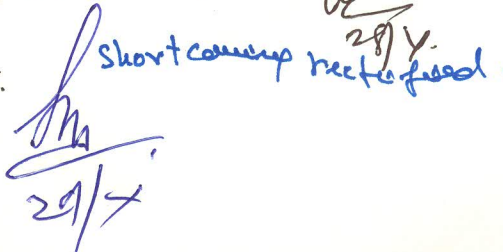 28/X
Shortcoming rectified
29/X